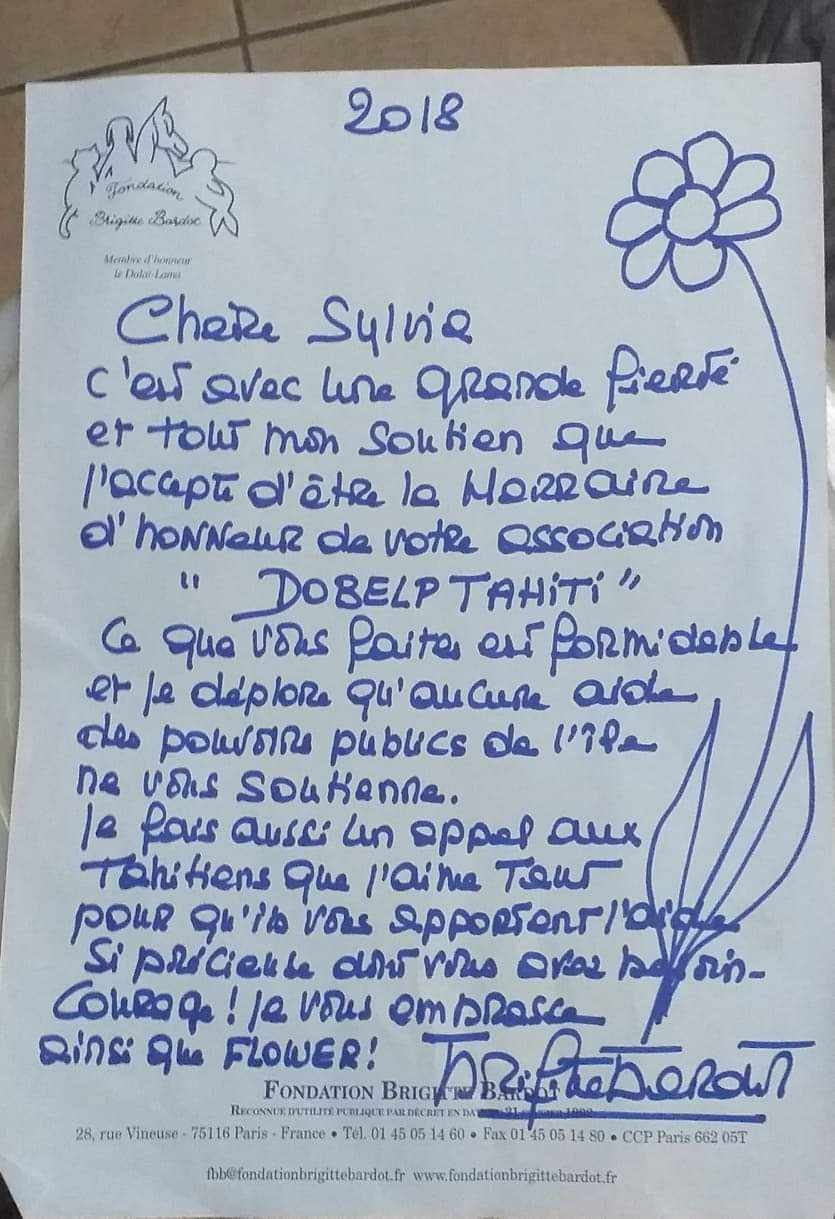 2018
Fondation
Brigitte Bardot
Membre d'honneur
le Dalaï-Lama
Chère Sylvie
c'est avec une grande fierté
et tout mon soutien que
j'accepte d'être la Marraine
d'honneur de votre association
" DOBELP TAHITI "
Ce que vous faites est formidable
et je déplore qu'aucune aide
des pouvoirs publics de l'île
ne vous soutienne.
Je fais aussi un appel aux
Tahitiens que j'aime tant
pour qu'ils vous apportent l'aide
si précieuse dont vous avez besoin-
Courage ! je vous embrasse
ainsi que FLOWER !
Brigitte Bardot
FONDATION BRIGITTE BARDOT
RECONNUE D'UTILITÉ PUBLIQUE PAR DÉCRET EN DATE
28, rue Vineuse - 75116 Paris - France • Tél. 01 45 05 14 60 • Fax 01 45 05 14 80 • CCP Paris 662 05T
fbb@fondationbrigittebardot.fr www.fondationbrigittebardot.fr